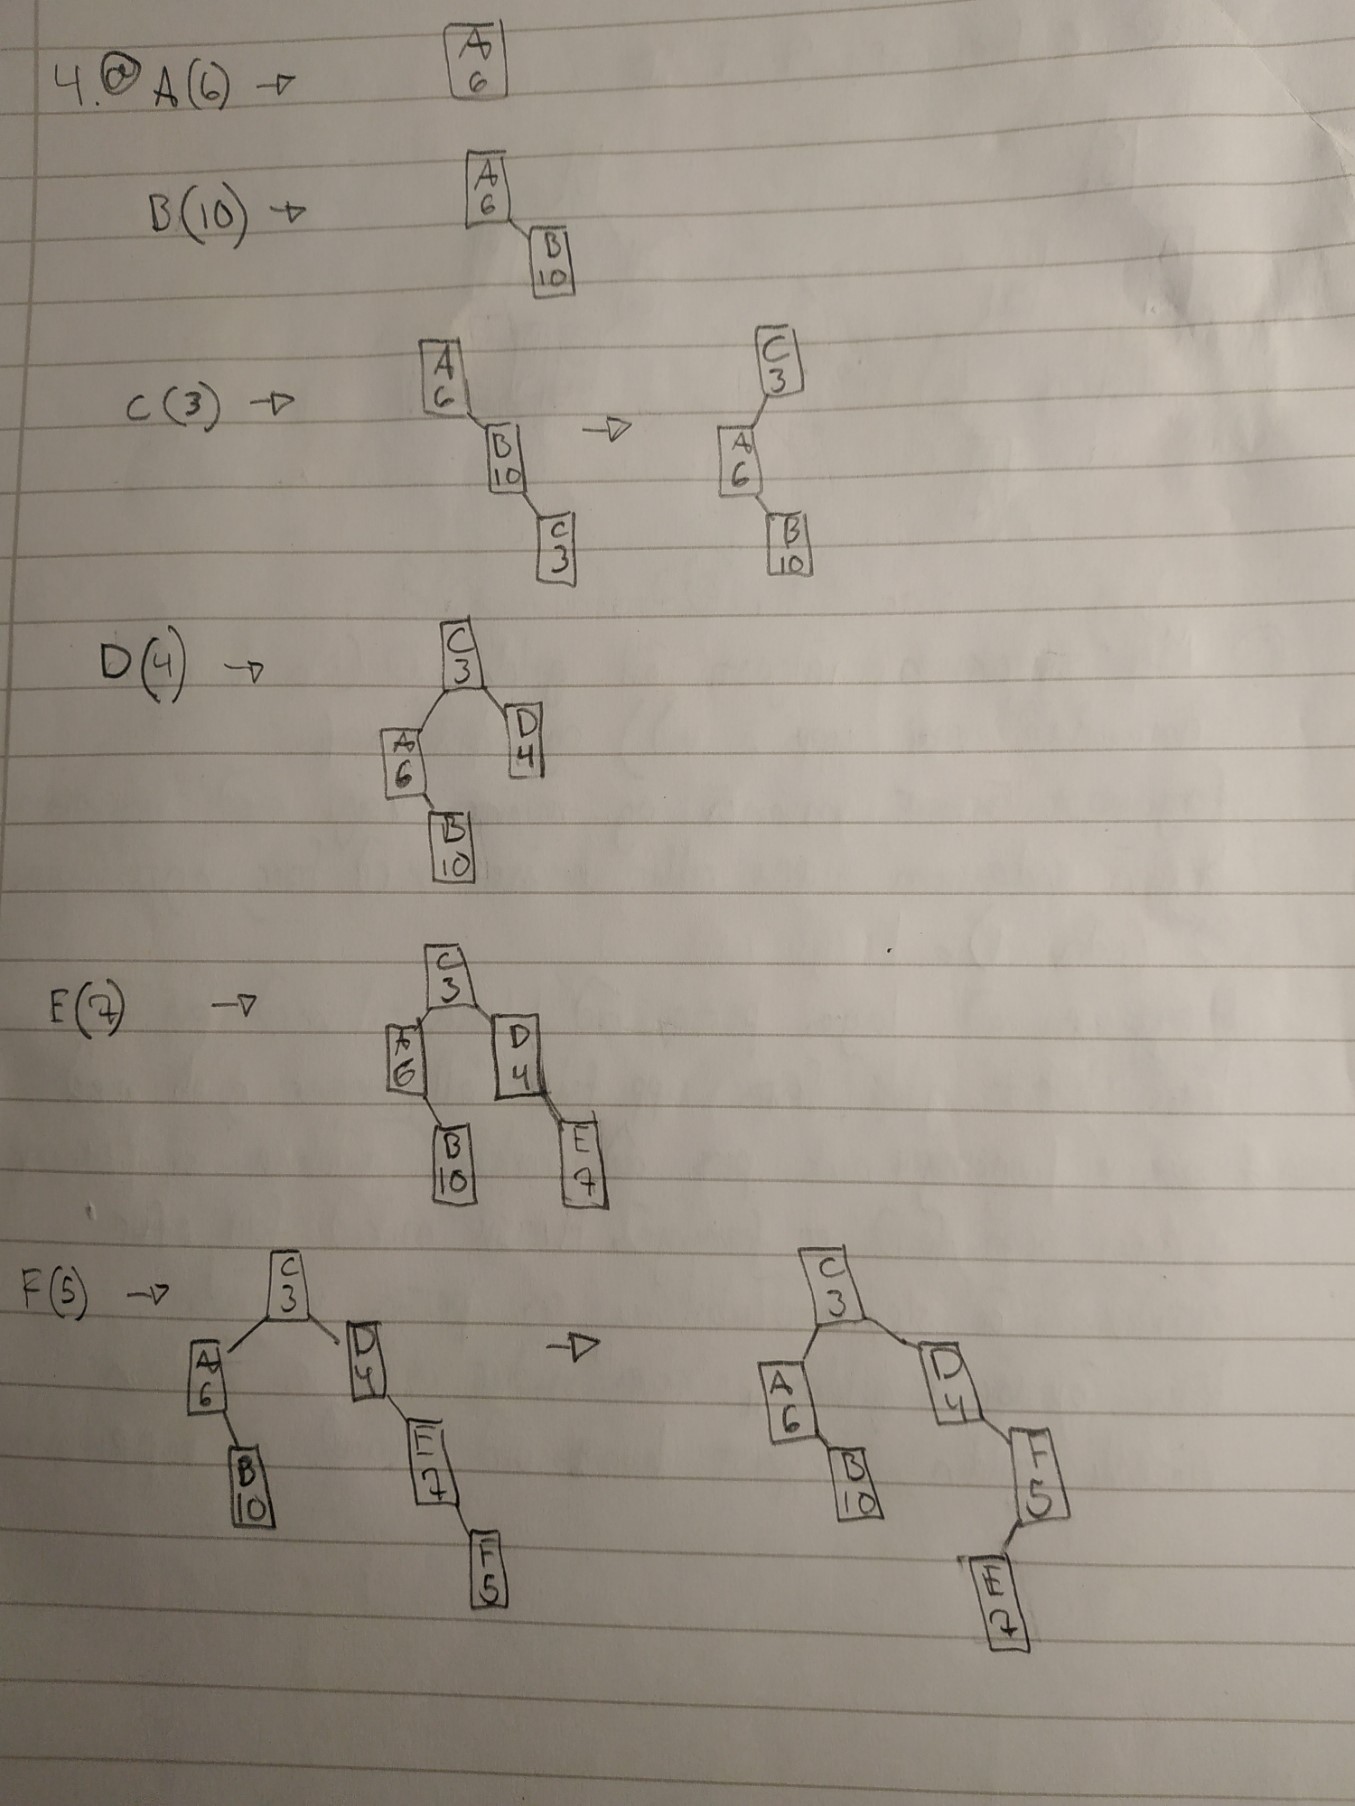 4. a A(6) →
A
6
B(10) →
A
6
B
10
C(3) →
A
6
B
10
C
3
→
C
3
A
6
B
10
D(4) →
C
3
A
6
D
4
B
10
E(7) →
C
3
A
6
D
4
B
10
E
7
F(5) →
C
3
A
6
D
4
B
10
E
7
F
5
→
C
3
A
6
D
4
B
10
F
5
E
7